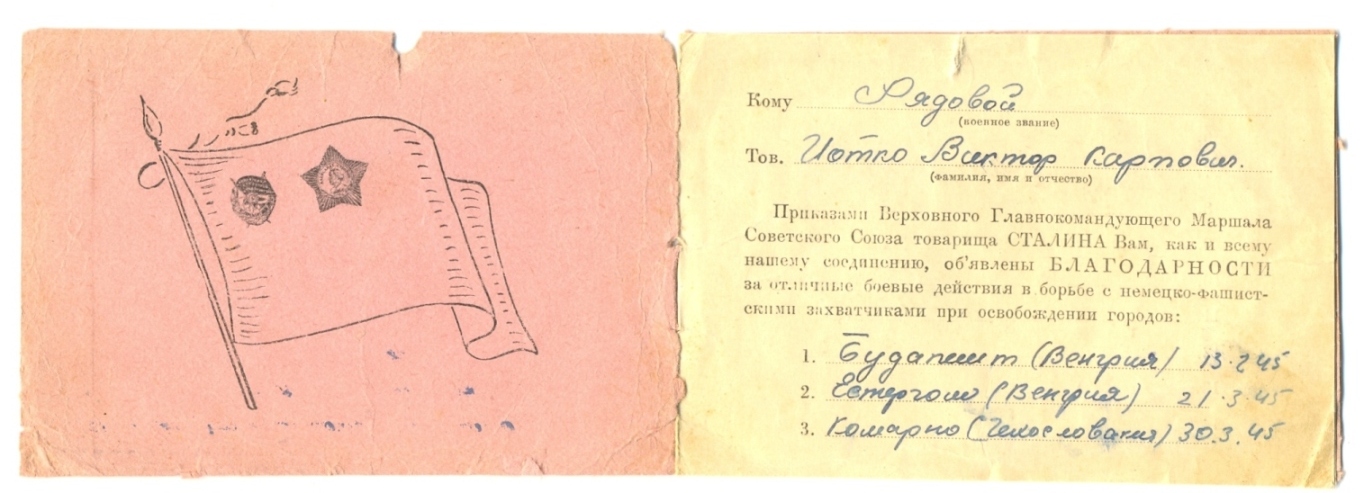 Кому Рядовой
(военное звание)
Тов. Иотко Виктор Карпович.
(фамилия, имя и отчество)
Приказами Верховного Главнокомандующего Маршала
Советского Союза товарища СТАЛИНА Вам, как и всему
нашему соединению, об'явлены БЛАГОДАРНОСТИ
за отличные боевые действия в борьбе с немецко-фашист-
скими захватчиками при освобождении городов:
1. Будапешт (Венгрия) 13.2 45
2. Естергом (Венгрия) 21.3.45
3. Комарно (Чехословакия) 30.3.45